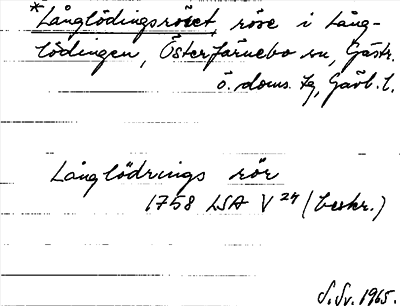 *Långlödingsröset, röse i Lång-
lödingen, Österfärnebo sn, Gästr.
ö. doms. tg, Gävl. l.
Långlödrings rör
1758 LSA V 24 (beskr.)
S. Sv. 1965.